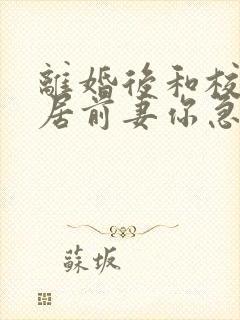 離婚後和校
居前妻你急
蘇坂